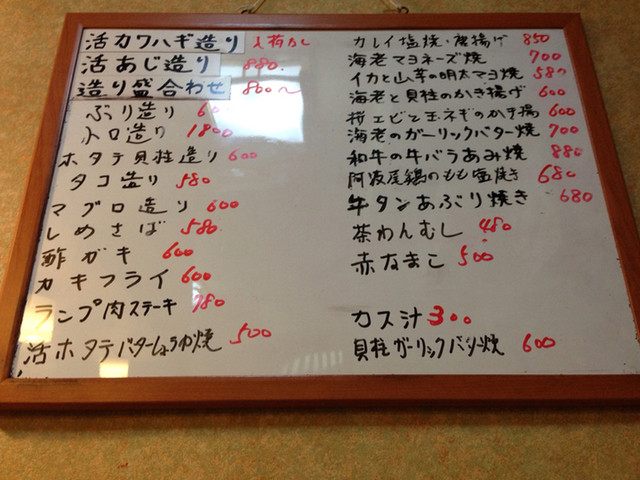 活カワハギ造り 入荷なし
活あじ造り 880
造り盛合わせ 800～
ぶり造り
トロ造り 1800
ホタテ貝柱造り 600
タコ造り 580
マグロ造り 600
しめさば 580
酢ガキ 600
カキフライ 600
ランプ肉ステーキ 780
活ホタテバターしょうゆ焼 500
カレイ塩焼・唐揚げ 850
海老マヨネーズ焼 700
イカと山芋の明太マヨ焼 580
海老と貝柱のかき揚げ 600
桜エビと玉ネギのかき揚 600
海老のガーリックバター焼 700
和牛の牛バラあみ焼 880
阿波尾鶏のもも塩焼き 680
牛タンあぶり焼き 680
茶わんむし 480
赤なまこ 500
カス汁 300
貝柱ガーリックバター焼 600